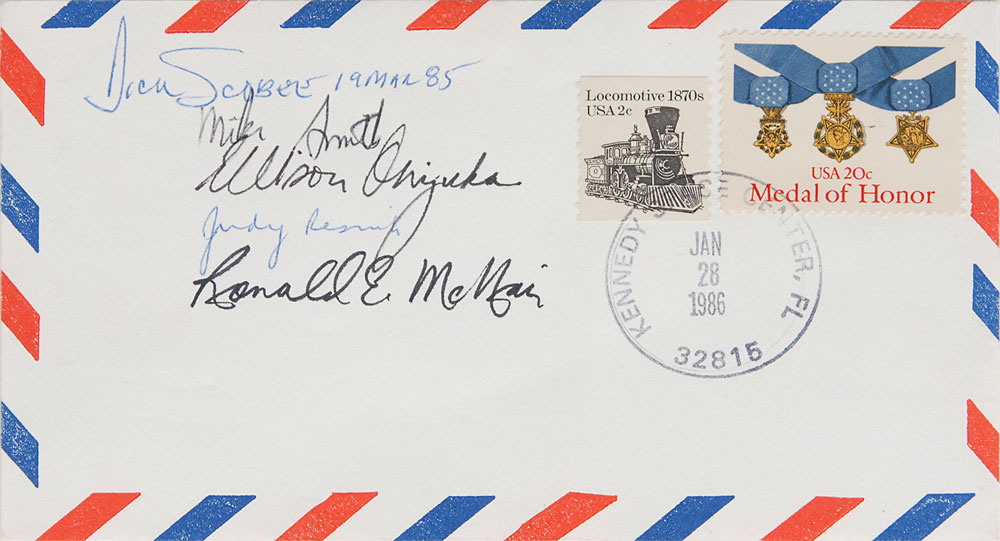 Dick Scobee 19 MAR 85
Mike Smith
Ellison Onizuka
Judy Resnik
Ronald E. McNair
Locomotive 1870s
USA 2c
USA 20c
Medal of Honor
KENNEDY SPACE CENTER, FL
JAN
28
1986
32815